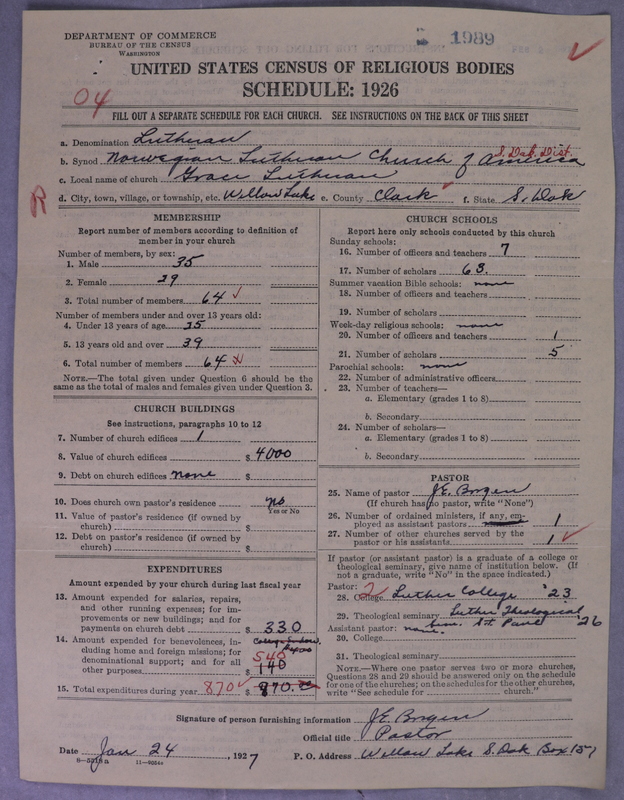 DEPARTMENT OF COMMERCE
BUREAU OF THE CENSUS
WASHINGTON
1989
UNITED STATES CENSUS OF RELIGIOUS BODIES
SCHEDULE: 1926
04
FILL OUT A SEPARATE SCHEDULE FOR EACH CHURCH. SEE INSTRUCTIONS ON THE BACK OF THIS SHEET
a. Denomination Lutheran
S. Dak. Dist.
b. Synod Norwegian Lutheran Church of America
c. Local name of church Grace Lutheran
R
d. City, town, village, or township, etc. Willow Lake e. County Clark f. State S. Dak
MEMBERSHIP
Report number of members according to definition of
member in your church
Number of members, by sex:
1. Male 35
2. Female 29
3. Total number of members 64
Number of members under and over 13 years old:
4. Under 13 years of age 25
5. 13 years old and over 39
6. Total number of members 64
NOTE.—The total given under Question 6 should be the
same as the total of males and females given under Question 3.
CHURCH BUILDINGS
See instructions, paragraphs 10 to 12
7. Number of church edifices 1
8. Value of church edifices $ 4000
9. Debt on church edifices none $
10. Does church own pastor's residence no
Yes or No
11. Value of pastor's residence (if owned by
church) $
12. Debt on pastor's residence (if owned by
church) $
EXPENDITURES
Amount expended by your church during last fiscal year
13. Amount expended for salaries, repairs,
and other running expenses; for im-
provements or new buildings; and for
payments on church debt $ 330
14. Amount expended for benevolences, in-
cluding home and foreign missions; for
denominational support; and for all
other purposes $ 540
140
15. Total expenditures during year 870 $ 870.
CHURCH SCHOOLS
Report here only schools conducted by this church
Sunday schools:
16. Number of officers and teachers 7
17. Number of scholars 63.
Summer vacation Bible schools: none
18. Number of officers and teachers
19. Number of scholars
Week-day religious schools: none
20. Number of officers and teachers 1
21. Number of scholars 5
Parochial schools: none
22. Number of administrative officers
23. Number of teachers—
a. Elementary (grades 1 to 8)
b. Secondary
24. Number of scholars—
a. Elementary (grades 1 to 8)
b. Secondary
PASTOR
25. Name of pastor J.E. Borgen
(If church has no pastor, write "None")
26. Number of ordained ministers, if any, em-
ployed as assistant pastors 1
27. Number of other churches served by the
pastor or his assistants 1
If pastor (or assistant pastor) is a graduate of a college or
theological seminary, give name of institution below. (If
not a graduate, write "No" in the space indicated.)
Pastor:
28. College Luther College '23
29. Theological seminary Luther Theological
Assistant pastor: none. Sem. St Paul 26
30. College
31. Theological seminary
NOTE.—Where one pastor serves two or more churches,
Questions 28 and 29 should be answered only on the schedule
for one of the churches; on the schedules for the other churches,
write "See schedule for church."
Signature of person furnishing information J.E. Borgen
Official title Pastor
Date Jan 24, 1927 P. O. Address Willow Lake S. Dak Box 157
11—9024